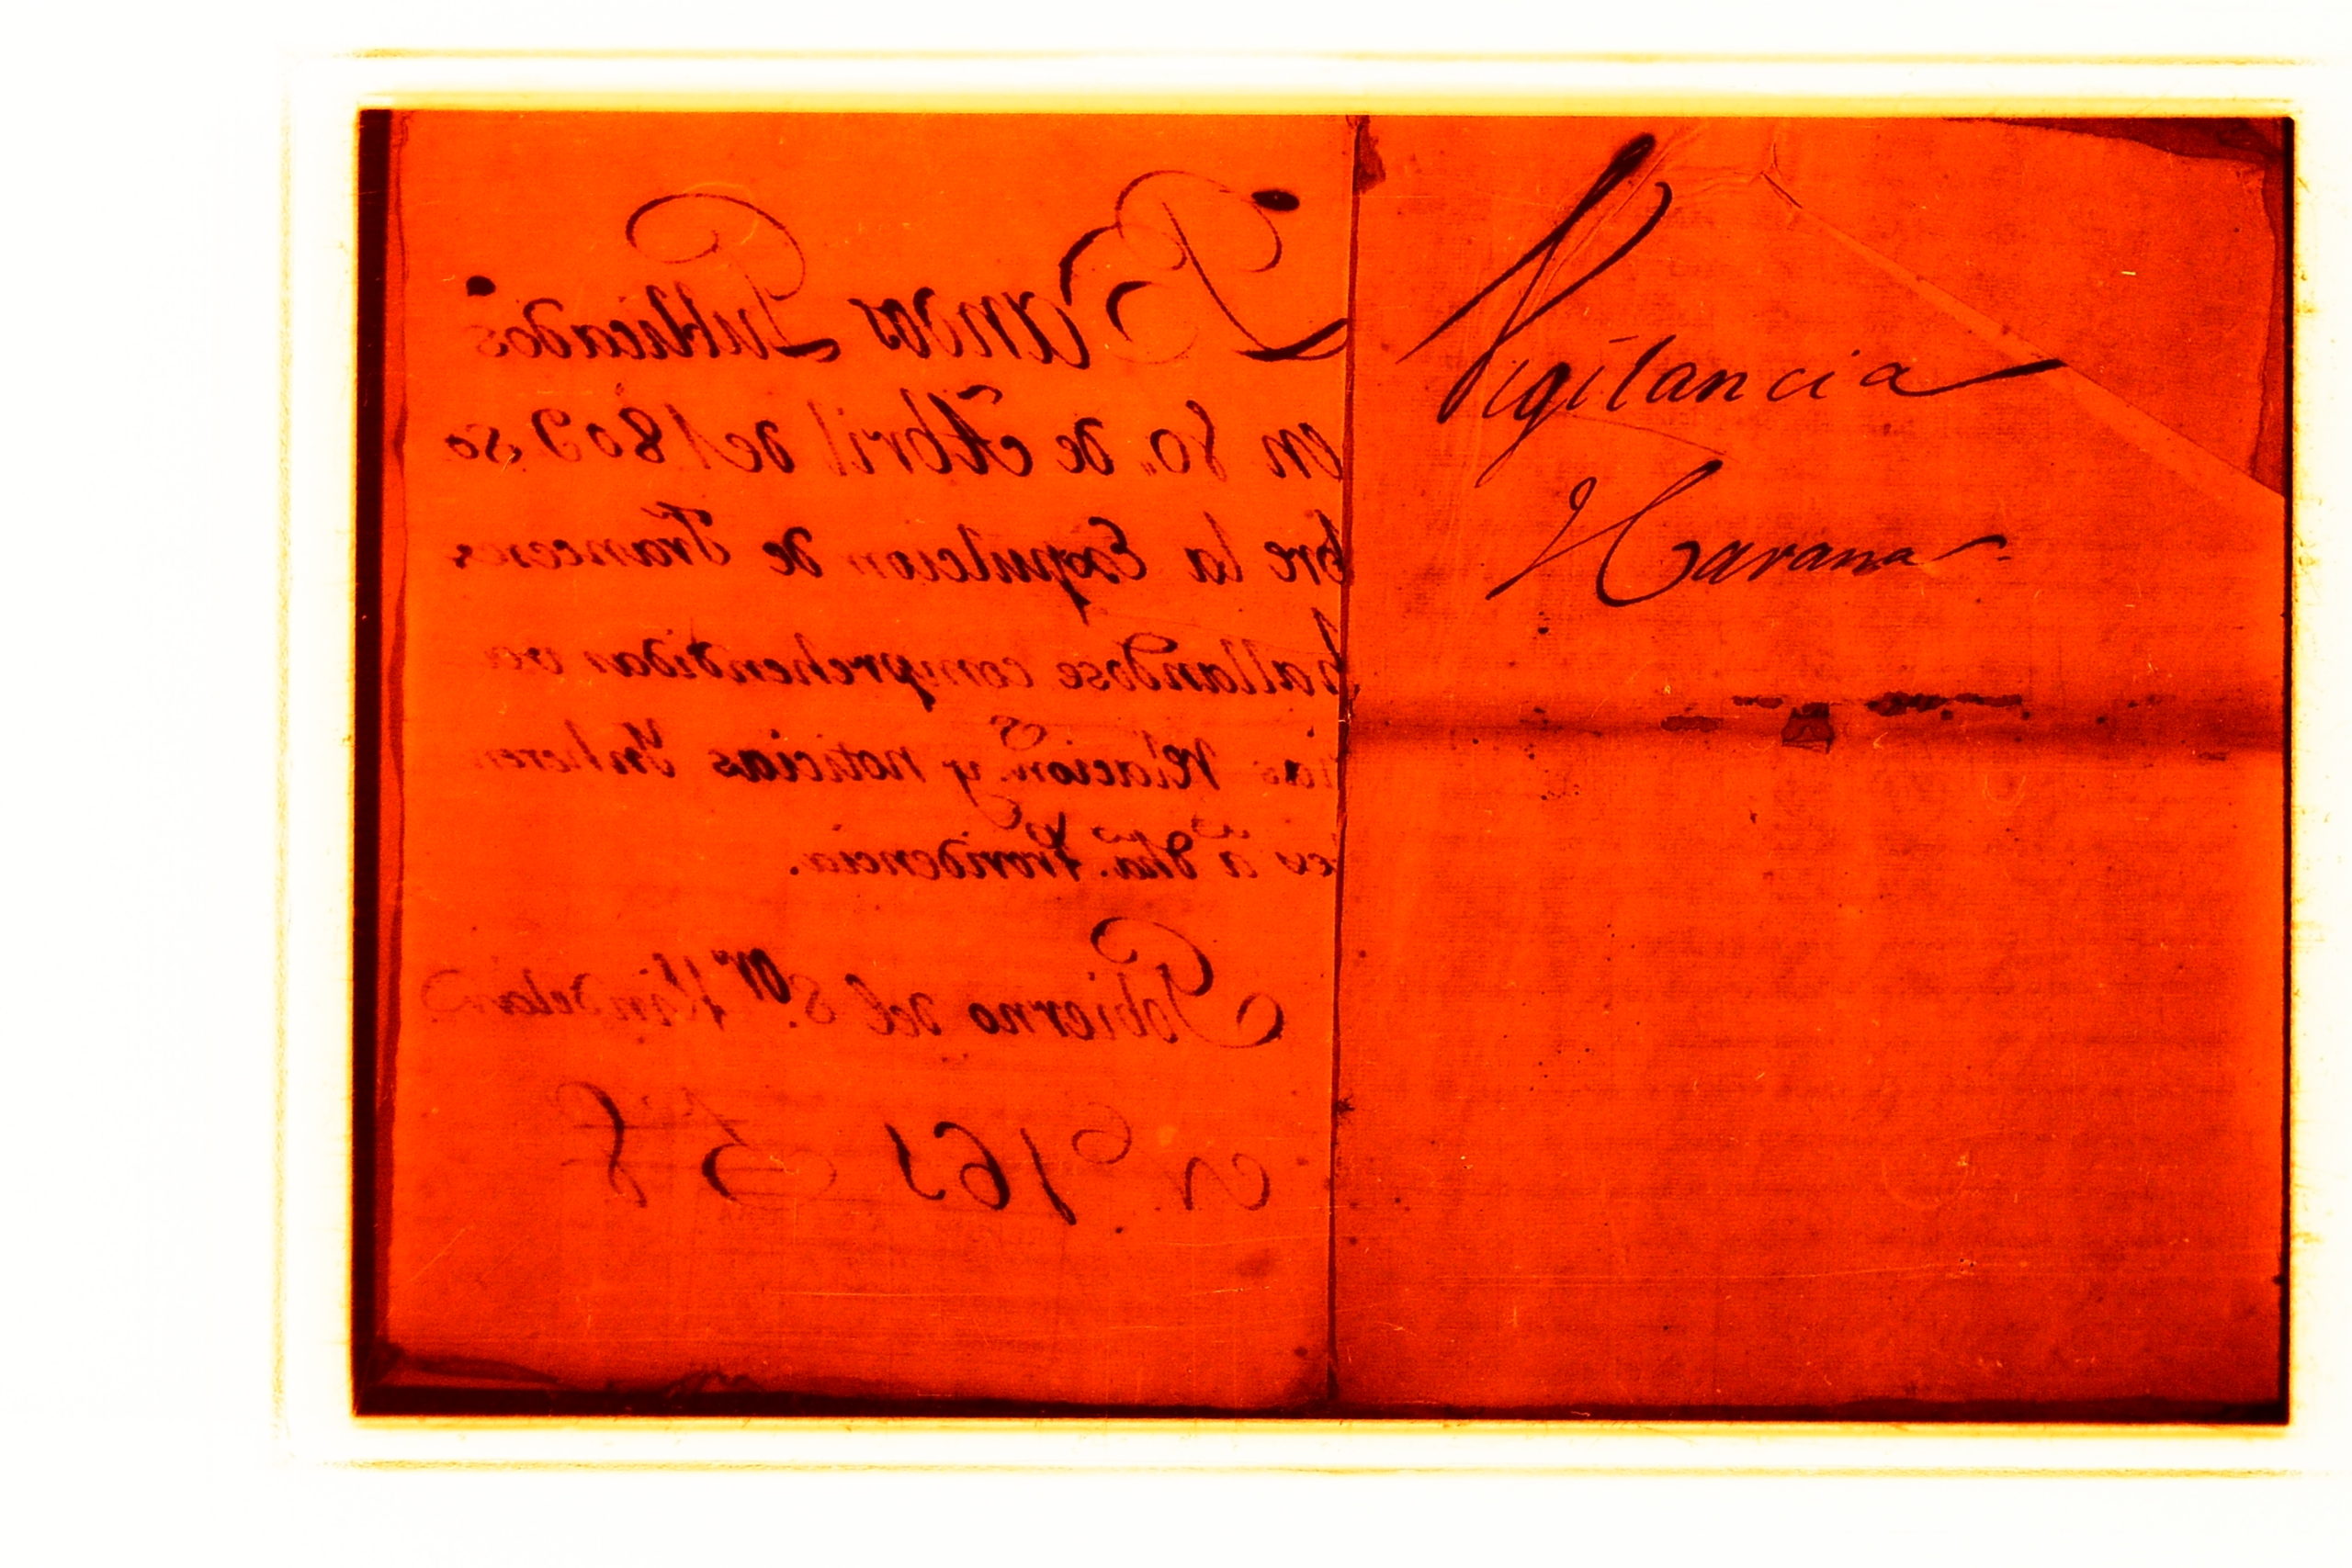 Bandos Publicados
en 80. de Abril de 1809 so
bre la Expulcion de Franceses
hallandose comprehendidas va
rias relacion.s y noticias Inheren
tes á dha. Providencia.
Gobierno del S.or Kindelan
N.o 161
Vigilancia
Havana